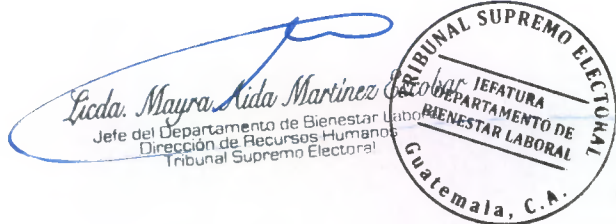 Licda. Mayra Aida Martínez Escobar
Jefe del Departamento de Bienestar Laboral
Dirección de Recursos Humanos
Tribunal Supremo Electoral
TRIBUNAL SUPREMO ELECTORAL
JEFATURA
DEPARTAMENTO DE
BIENESTAR LABORAL
Guatemala, C.A.